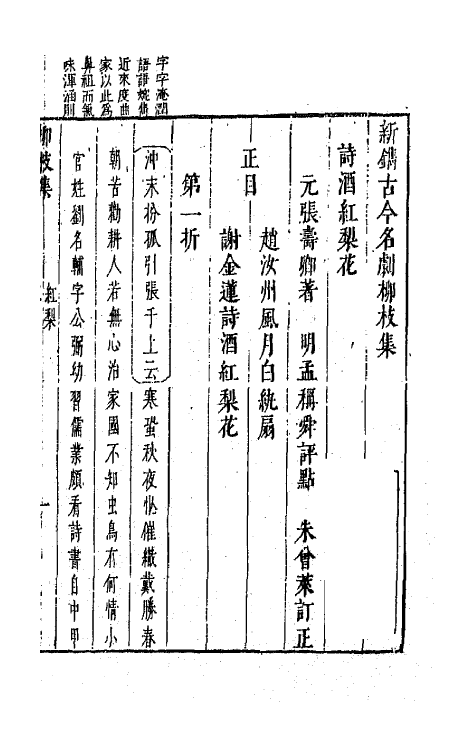 新鐫古今名劇柳枝集
詩酒紅梨花
元張壽卿著　明孟稱舜評點　朱曾萊訂正
正目
趙汝州風月白紈扇
謝金蓮詩酒紅梨花
第一折
沖末扮孤引張千上云寒蛩秋夜忙催織戴勝春
朝苦勸耕人若無心治家國不知虫鳥有何情小
官姓劉名輔字公弼幼習儒業頗看詩書自中甲
字字淹潤
語語婉雋
近來度曲
家以此為
鼻祖而氣
味渾涵則
柳枝集
紅梨
一